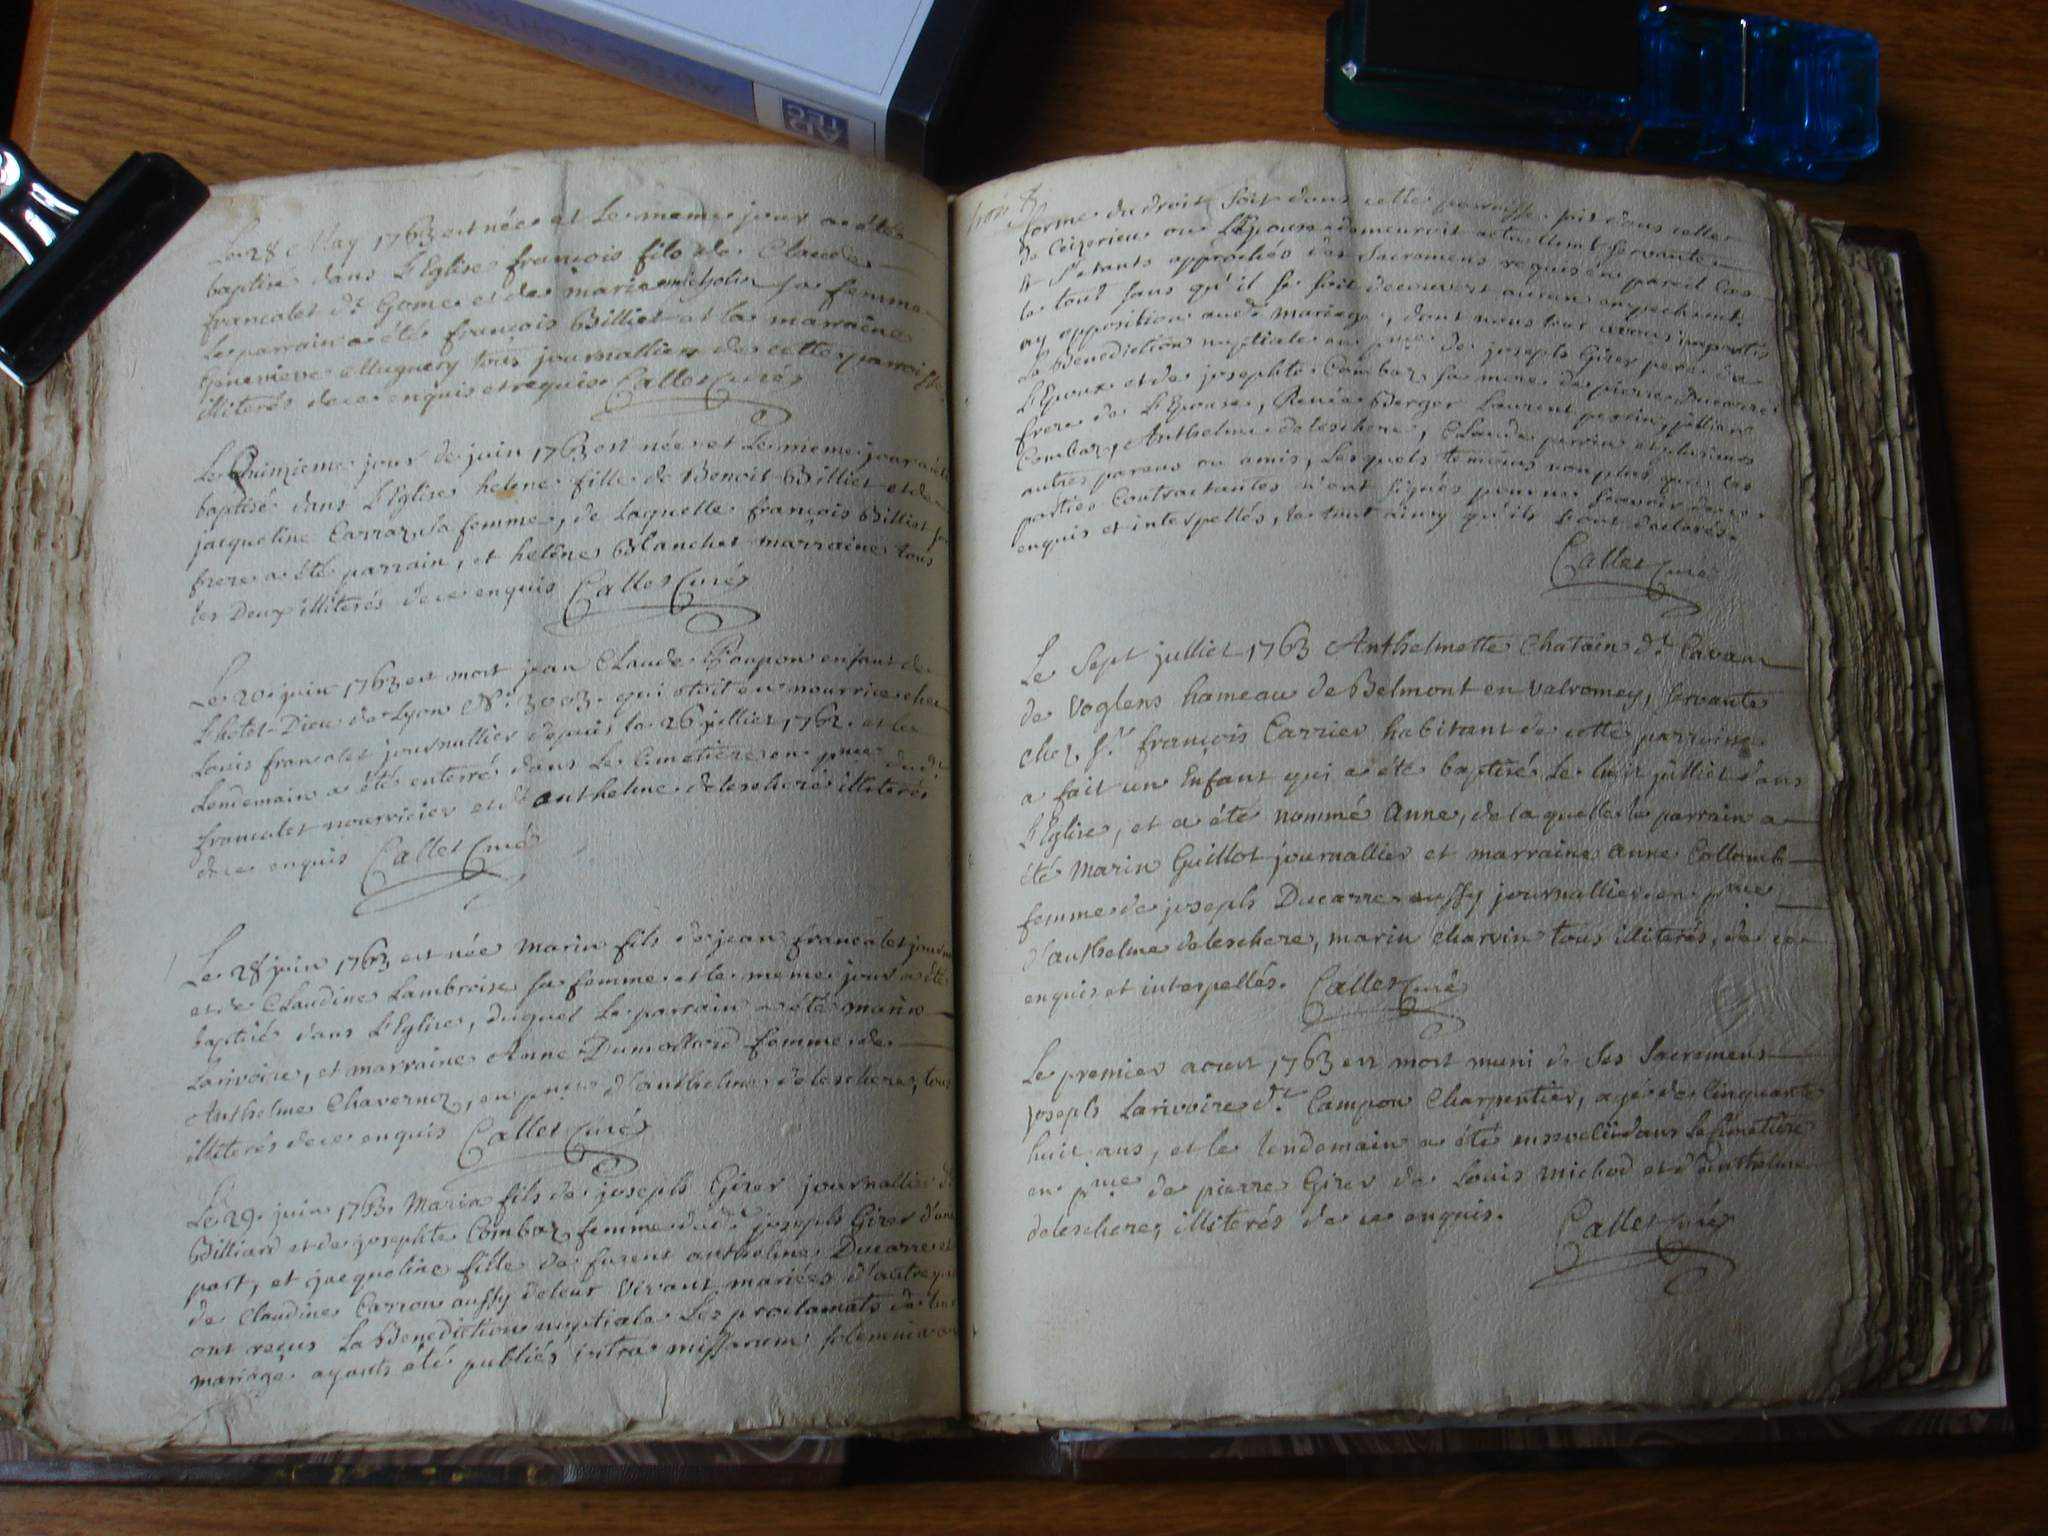 AD
TEC
Le 28 May 1763 est née et Le meme jour a été
baptisé dans L'Eglise françois fils de Claude
francalet dt Gome et de marie micholin sa femme
Le parrain a été françois Billiet et la marraine
Genevieve Mugnery tous journalliers de cette parroisse
illiterés de ce enquis et requis. Callet Curé
Le Quinzieme jour de juin 1763 est née et Le meme jour a été
baptisé dans L'Eglise helene fille de Benoit Billiet et de
jacqueline Carraz sa femme, de Laquelle françois Billiet son
frere a été parrain, et heléne Blanchet marraine tous
les Deux illiterés de ce enquis Callet Curé
Le 20 juin 1763 est mort jean Claude Poupon enfant de
L'hotel-Dieu de Lyon No. 3003. qui étoit en nourrice chez
Louis francalet journallier depuis le 26 jullliet 1762. et le
Lendemain a été enterré dans Le Cimetiere en pnce dudt
francalet nourricier et d'anthelme deleschere illiterés
de ce enquis Callet Curé
Le 28 juin 1763 est née Marin fils de jean francalet journ
et de Claudine Lambroise sa femme et le meme jour a été
baptisé dans L'Eglise, duquel Le parrain a été marin
Larivoire, et marraine Anne Dumollard femme de
Anthelme Chavernoz, en pnce d'anthelme deleschere, tous
illiterés de ce enquis Callet Curé
Le 29. juin 1763. Marin fils de joseph Girer journallier dt
Billiard et de josephte Combaz femme dudt joseph Girer d'une
part, et jacqueline fille de furent anthelme Ducarre et
de Claudine Carron aussy de leur vivant mariées d'autre part
ont reçus La Benediction nuptiale Les proclamats de leur
mariage ayants été publiés intra missarum solemnia en
forme du droit soit dans cette parroisse soit dans celle
de Ceizerieu ou L'Epouse demeuroit actuellemt servante
et s'etants approchés des Sacremens requis en pareil Cas
le tout sans qu'il se soit decouvert aucun empechemt
ny opposition audt mariage, dont nous leur avons impartis
La Benediction nuptiale en pnce de joseph Girer pere de
L'Epoux et de josephte Combaz sa mere de pierre Ducarre
frere de L'Epouse, Renée Berger Laurent perrin, jullian
Combaz, Anthelme deleschere, Claude perrin et plusieurs
autres parens ou amis, Lesquels temoins non plus que les
parties Contractantes n'ont signés pour ne sçavoir de ce
enquis et interpellés, le tout ainsy qu'ils L'ont declarés.
Callet Curé
Le Sept julliet 1763 Anthelmette Chatain dt Cavan
de Voglens hameau de Belmont en Valromey, servante
chez Sr françois Carrier habitant de cette parroisse
a fait un Enfant qui a été baptisé Le huit julliet dans
L'Eglise, et a été nommé Anne, de la quelle le parrain a
été Marin Guillot journallier et marraine anne Collomb
femme de joseph Ducarre aussy journallier en pnce
d'anthelme deleschere, marin charvin tous illiterés, de ce
enquis et interpellés. Callet Curé
Le premier aoust 1763 est mort muni de ses Sacremens
joseph Larivoire dt Campon Charpentier, agé de Cinquante
huit ans, et le lendemain a été enseveli dans Le Cimetiere
en pnce de pierre Girer de Louis michod et d'anthelme
deleschere, illiterés de ce enquis. Callet Curé